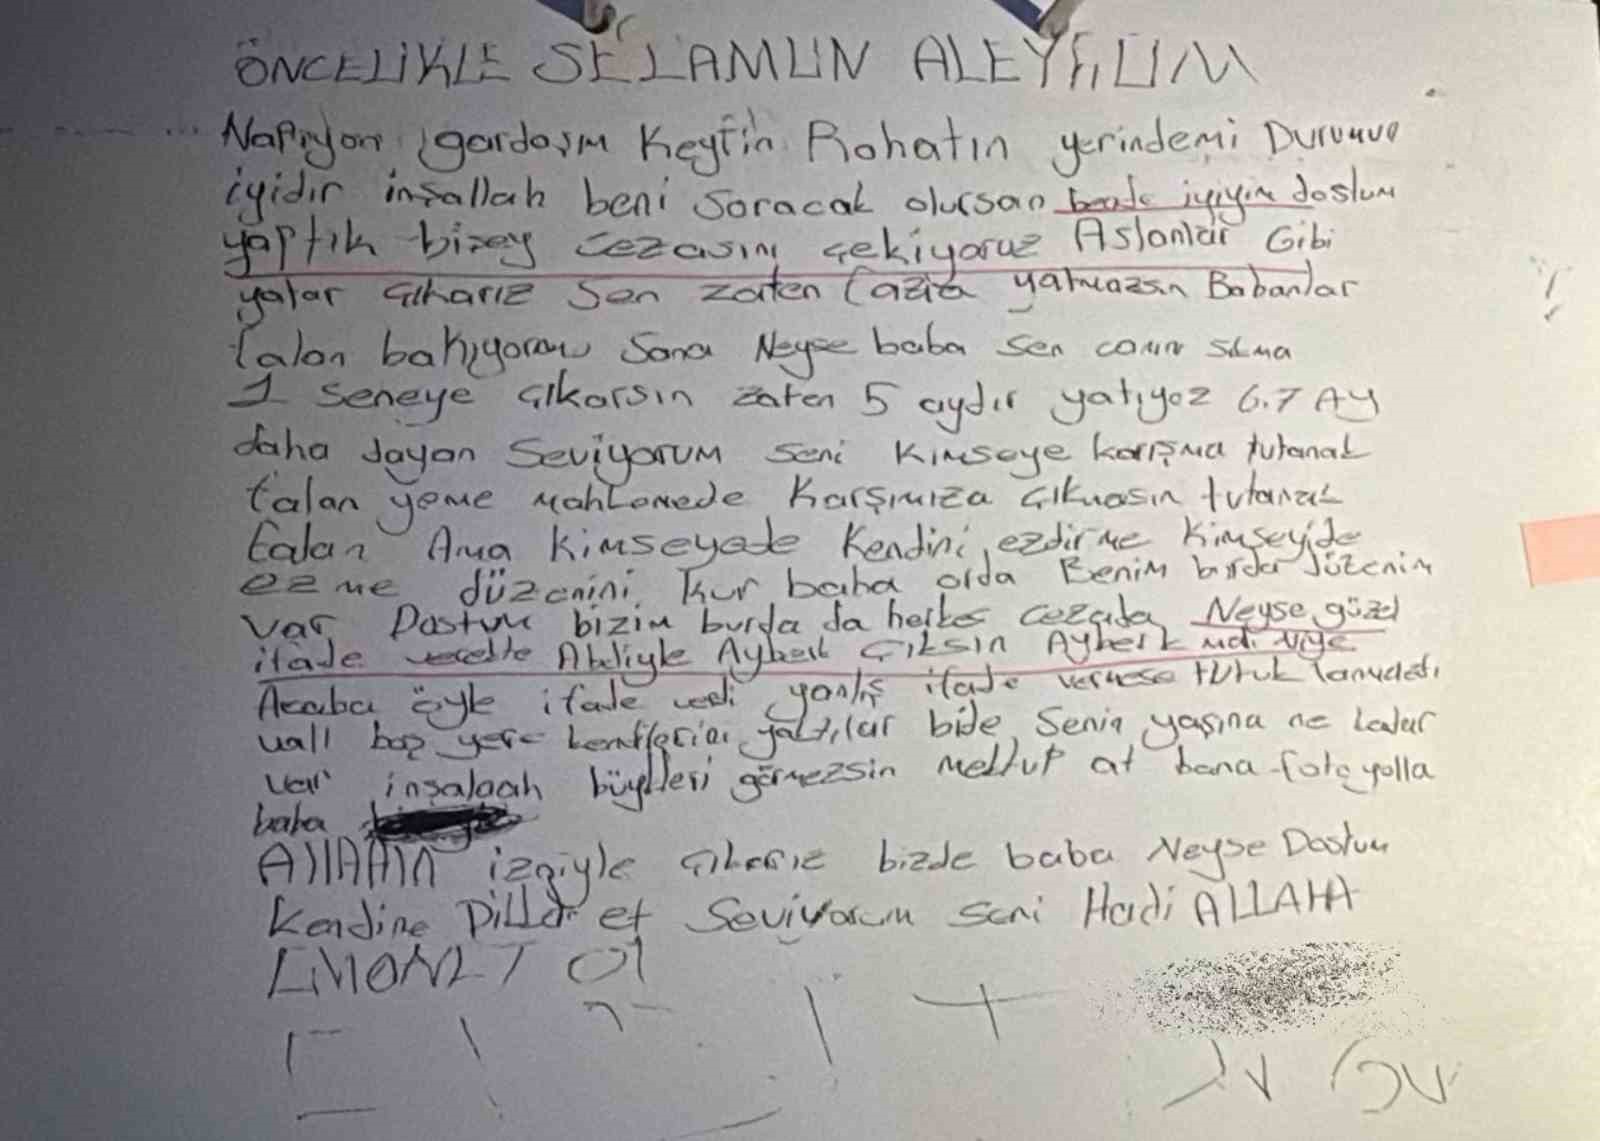 ÖNCELİKLE SELAMUN ALEYKUM
Napıyon gardaşım Keyfin Rahatın yerindemi Durumun
iyidir inşallah beni soracak olursan bende iyiyim dostum
yaptık bişey cezasını çekiyoruz Aslanlar Gibi
yatar çıkarız Sen zaten fazla yatmazsın Babanlar
falan bakıyorlar Sana Neyse baba sen canın sıkma
1 seneye çıkarsın zaten 5 aydır yatıyoz 6.7 AY
daha dayan Seviyorum seni kimseye karışma tutanak
falan yeme mahkemede karşımıza çıkmasın tutanak
falan Ama kimseyede kendini ezdirme kimseyide
ezme düzenini kur baba orda Benim burda düzenim
var Dostum bizim burda da herkes cezada Neyse güzel
ifade verekte Abeliyle Ayberk Çıksın Ayberk mdi niye
Acaba öyle ifade verdi yanlış ifade vermese tutuklanmadı
vall boş yere kendilerini yaktılar bide Senin yaşına ne kadar
var inşalaah büyükleri görmezsin mektup at bana foto yolla
baba
AllAHIN izniyle çıkarız bizde baba Neyse Dostum
kendine Dikkat et Seviyorum seni Hadi ALLAHA
EMANET Ol